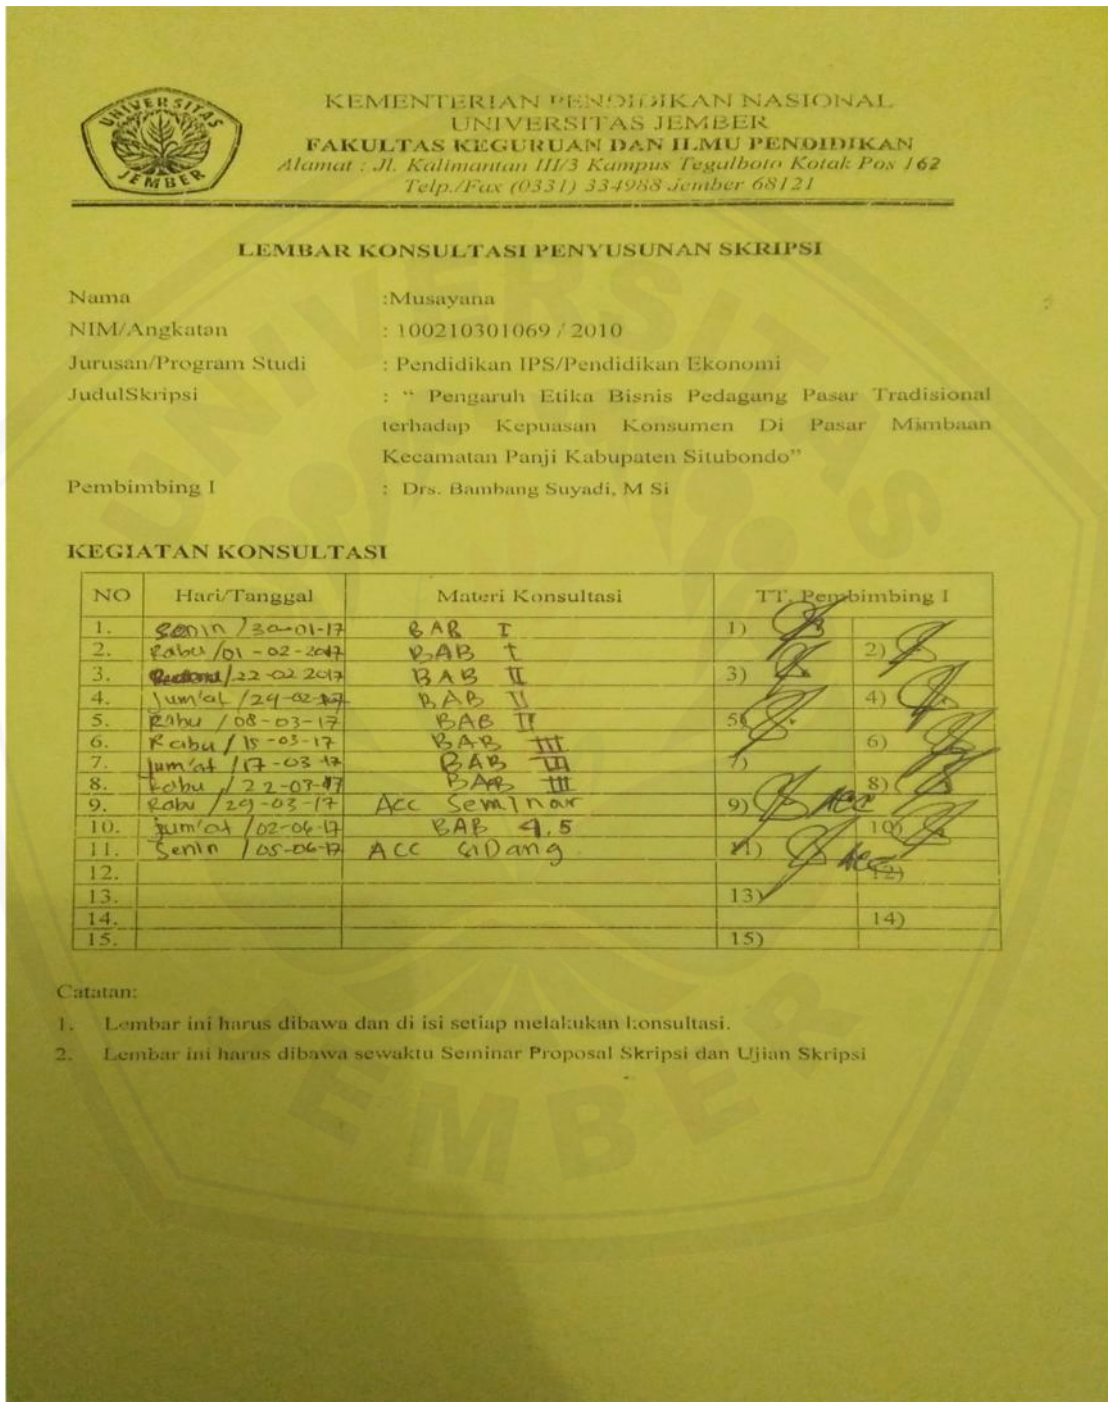 UNIVERSITAS JEMBER
KEMENTERIAN PENDIDIKAN NASIONAL
UNIVERSITAS JEMBER
FAKULTAS KEGURUAN DAN ILMU PENDIDIKAN
Alamat : Jl. Kalimantan III/3 Kampus Tegalboto Kotak Pos 162
Telp./Fax (0331) 334988 Jember 68121
LEMBAR KONSULTASI PENYUSUNAN SKRIPSI
Nama :Musayana
NIM/Angkatan : 100210301069 / 2010
Jurusan/Program Studi : Pendidikan IPS/Pendidikan Ekonomi
JudulSkripsi : “ Pengaruh Etika Bisnis Pedagang Pasar Tradisional
terhadap Kepuasan Konsumen Di Pasar Mimbaan
Kecamatan Panji Kabupaten Situbondo”
Pembimbing I : Drs. Bambang Suyadi, M Si
KEGIATAN KONSULTASI
NO Hari/Tanggal Materi Konsultasi TT. Pembimbing I
1. Senin /30-01-17 BAB I 1)
2. Rabu /01-02-2017 BAB I 2)
3. /22-02 2017 BAB II 3)
4. Jum'at /24-02-17 BAB II 4)
5. Rabu /08-03-17 BAB II 5)
6. Rabu / 15-03-17 BAB III 6)
7. Jum'at /17-03-17 BAB III 7)
8. Rabu / 22-03-17 BAB III 8)
9. Rabu /29-03-17 Acc Seminar 9) Acc
10. Jum'at /02-06-17 BAB 4.5 10)
11. Senin /05-06-17 ACC SiDang 11) Acc
12. 12)
13. 13)
14. 14)
15. 15)
Catatan:
1. Lembar ini harus dibawa dan di isi setiap melakukan konsultasi.
2. Lembar ini harus dibawa sewaktu Seminar Proposal Skripsi dan Ujian Skripsi
UNIVERSITAS JEMBER